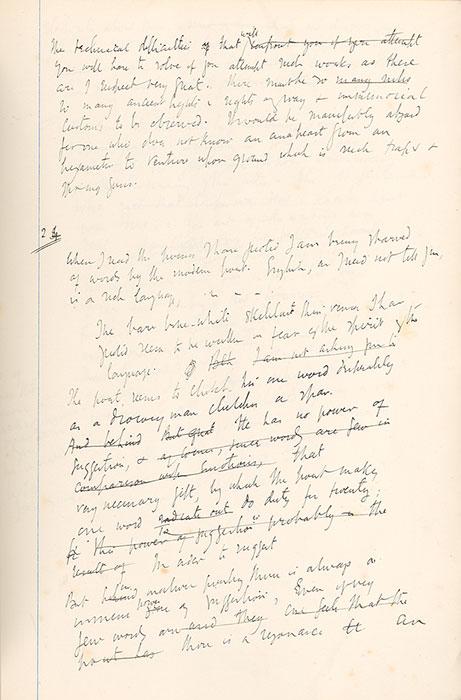 The technical difficulties of that will confront you if you attempt
you will have to solve if you attempt such work, as there
are I suspect very great. There must be so many rules
so many ancient rights & rights of way & immemorial
customs to be observed. It would be manifestly absurd
for one who does not know an anapaest from an
hexameter to venture upon ground which is such traps &
spring guns.
2
When I read the poems I have quoted I am being starved
of words by the modern poet. English, as I need not tell you,
is a rich language,
The bare bone-white skeleton
seem to be written in fear of the spirit of the
language. Both I am not asking for a
The poet seems to clutch his one word desperately
as a drowning man clutches a spar.
And behind But great He has no power of
suggestion, & of course, since words are few in
comparison with emotions, that
very necessary gift, by which the poet makes
one word do duty for twenty;
this power of suggestion probably in the
result of In order to suggest
But behind poetry there is always an
immense power of suggestion. Even if very
few words are said they one feels that the
poet has there is a resonance an